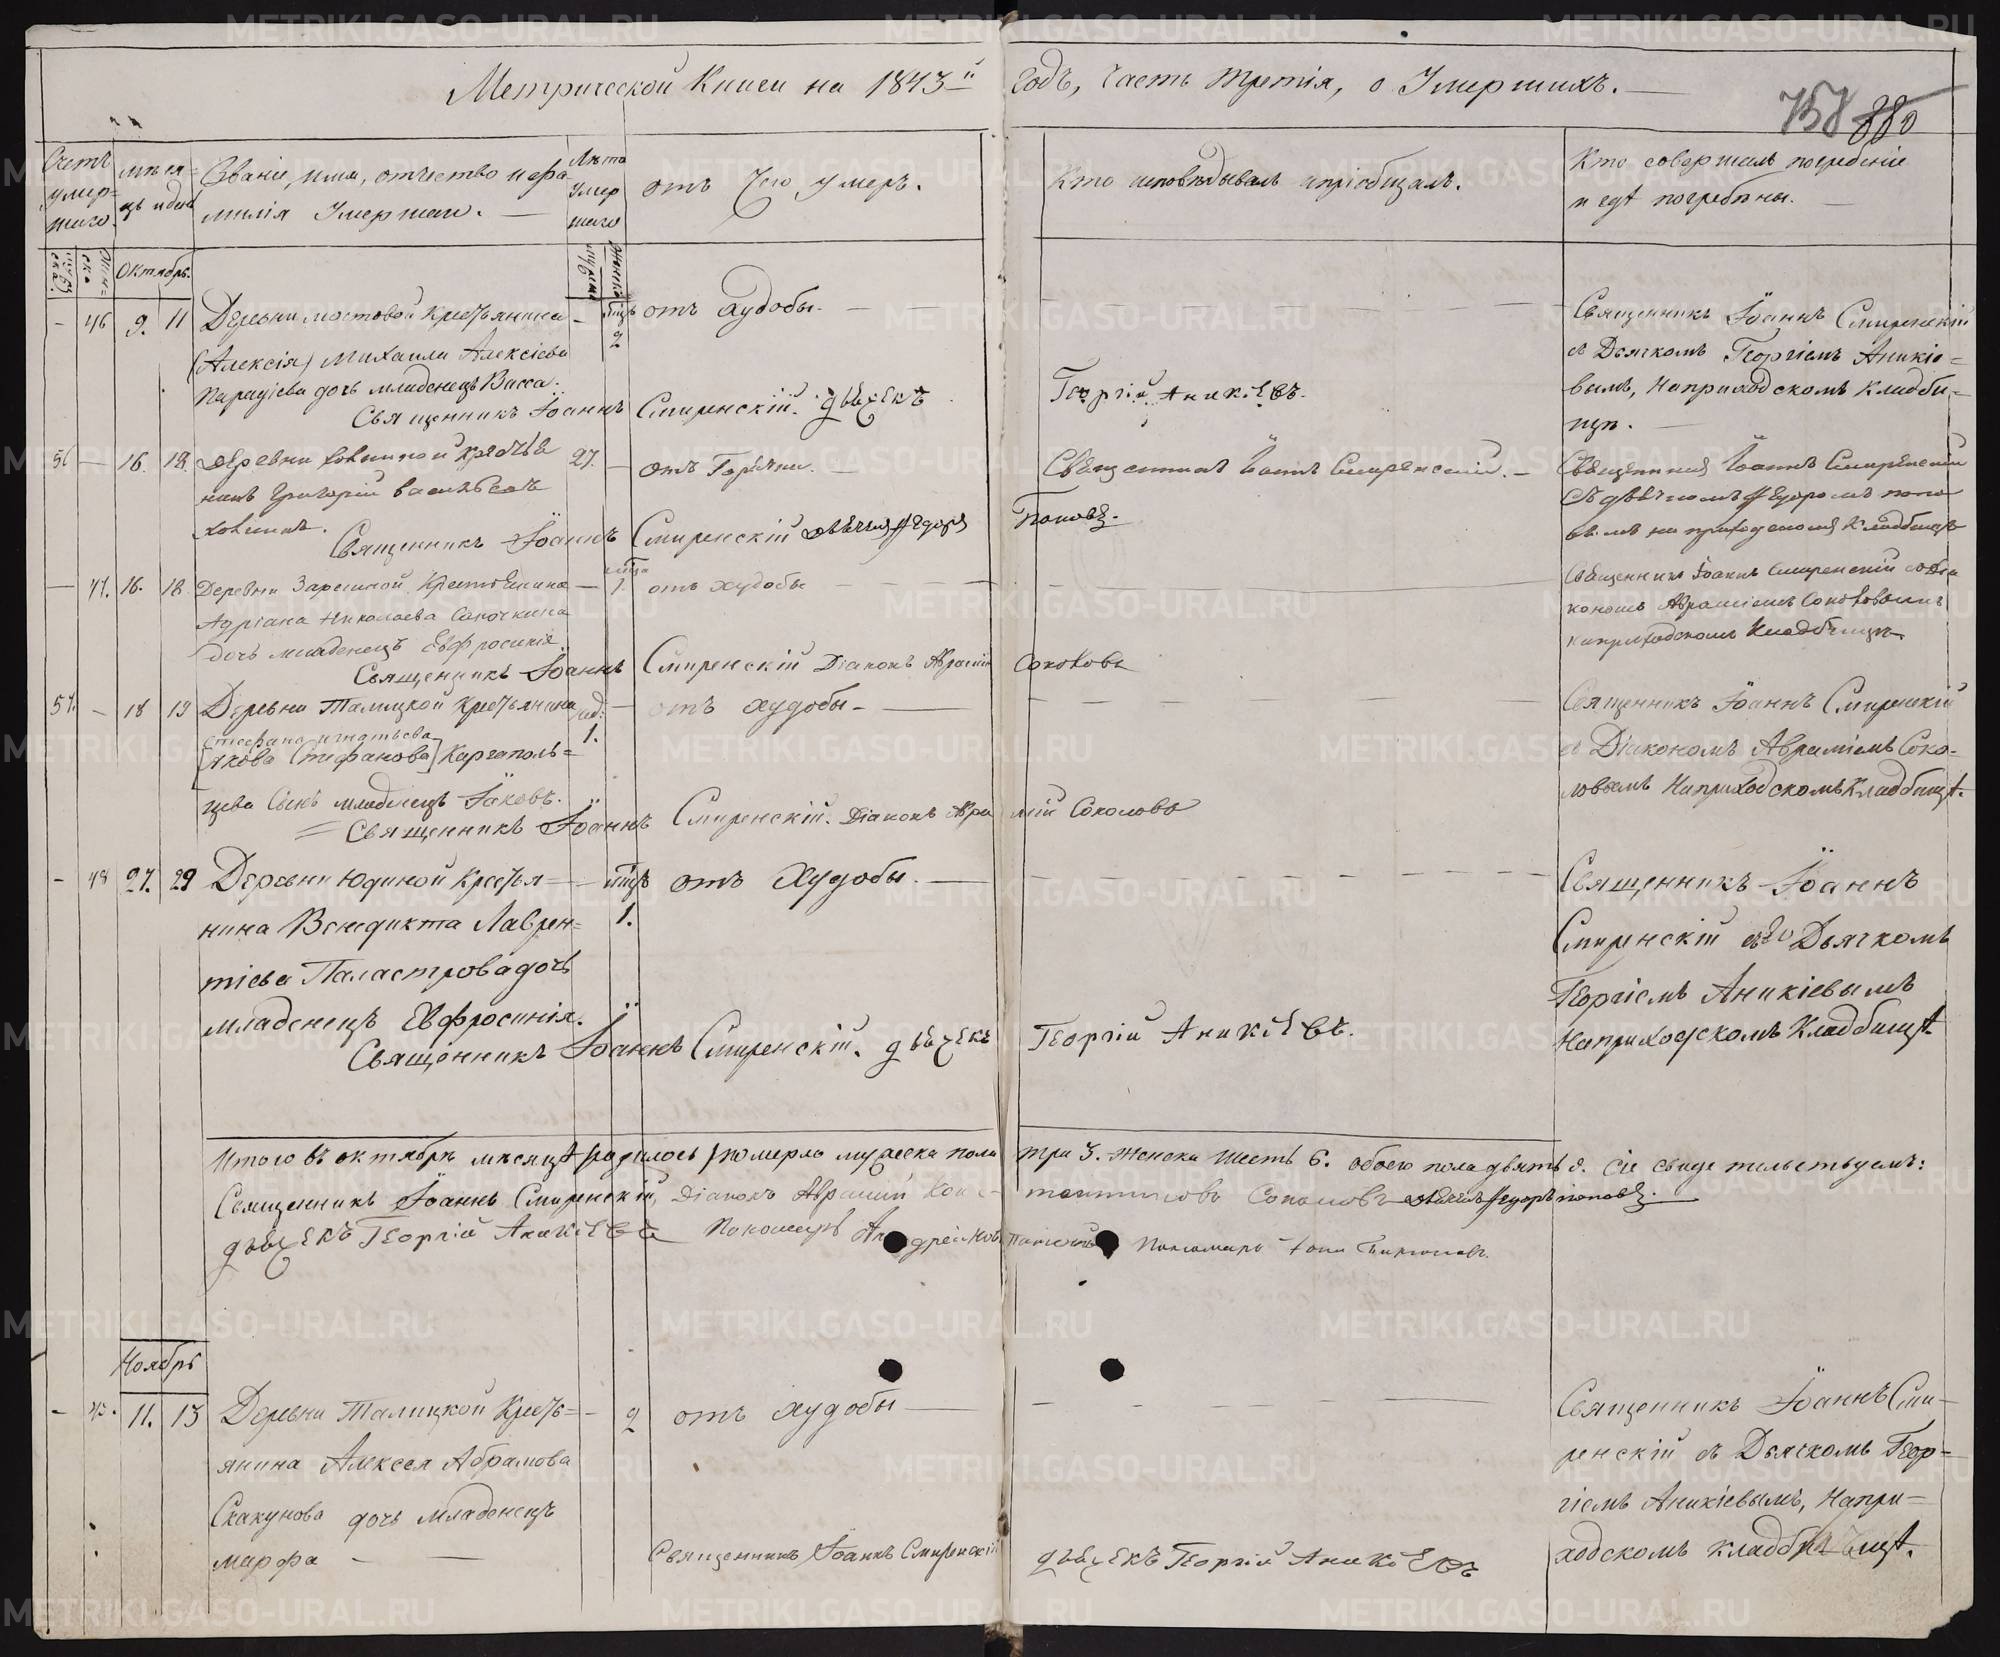 Метрической Книги на 1843й Годъ, Часть Третія, о Умершихъ.
880
Счетъ умер=шаго.
мѣся=цъ и день
Званіе, имя, отчество и фа=
милія Умершаго.
Лѣта Умершаго
отъ Чего умеръ.
Кто исповѣдывалъ и пріобщалъ.
Кто совершалъ погребеніе
и гдѣ погребены.
Октябрь.
- 46 9. 11 Деревни мостовой Крестьянина - мцъ 2 отъ худобы.
(Алексія) Михаила Алексіева
дочь младенецъ Васса.
Священникъ Іоаннъ Смиренскій. дьячекъ Георгій Аникіевъ.
Священникъ Іоаннъ Смиренскій
съ Дьячкомъ Георгіемъ Аникіе=
вымъ, На приходскомъ Кладби=
щѣ.
56 - 16. 18. деревни крестья 27. - отъ Горячки. Священникъ Іоаннъ Смиренскій.
нинъ Григорій Васильевъ
Священникъ Іоаннъ Смиренскій дьячекъ Федоръ Поповъ.
Священникъ Іоаннъ Смиренскій
съ дьячкомъ Федоромъ попо
вымъ на приходскомъ Кладбищѣ
- 47. 16. 18 Деревни Зарѣчной Крестьянина - 1. отъ худобы
Адріана Николаева Сапочкина
дочь младенецъ Евфросинія.
Священникъ Іоаннъ Смиренскій Діаконъ Аврамій Соколовъ
Священникъ Іоаннъ Смиренскій со Діа
кономъ Авраміемъ Соколовымъ
на приходскомъ Кладбищѣ
57. - 18 19 Деревни Талицкой Крестьянина год: 1. - отъ худобы
стефана игнатьева
[Якова Стефанова] Каргаполь=
цева Сынъ младенецъ Іаковъ.
Священникъ Іоаннъ Смиренскій. Діаконъ Аврамій Соколовъ
Священникъ Іоаннъ Смиренскій
съ Діакономъ Авраміемъ Соко-
ловымъ На приходскомъ Кладбищѣ.
- 48 27. 29 Деревни Юдиной Крестья- - мцъ 1. отъ Худобы.
нина Венедикта Лаврен=
тіева Паластрова дочь
младенецъ Евфросинія.
Священникъ Іоаннъ Смиренскій. дьячекъ Георгій Аникіевъ.
Священникъ Іоаннъ
Смиренскій съ Дьячкомъ
Георгіемъ Аникіевымъ
На приходскомъ Кладбищѣ.
Итого въ октябрѣ мѣсяцѣ (родилось) померло мужеска пола три 3. женска шесть 6. обоего пола девять 9. Сіе свидетельствуемъ:
Священникъ Іоаннъ Смиренскій, Діаконъ Аврамій Конс- тантиновъ Соколовъ дьячекъ Федоръ поповъ.
дьячекъ Георгій Аникіевъ Пономарь Андрей Пономарь
Ноябрь
- 49. 11. 13 Деревни Талицкой Кресть= - 2 отъ худобы
янина Алексея Абрамова
Скакунова дочь младенецъ
марфа
Священникъ Іоаннъ Смиренскій дьячекъ Георгій Аникіевъ
Священникъ Іоаннъ Сми-
ренскій съ Дьячкомъ Геор=
гіемъ Аникіевымъ, На при-
ходскомъ кладбищѣ.
METRIKI.GASO-URAL.RU